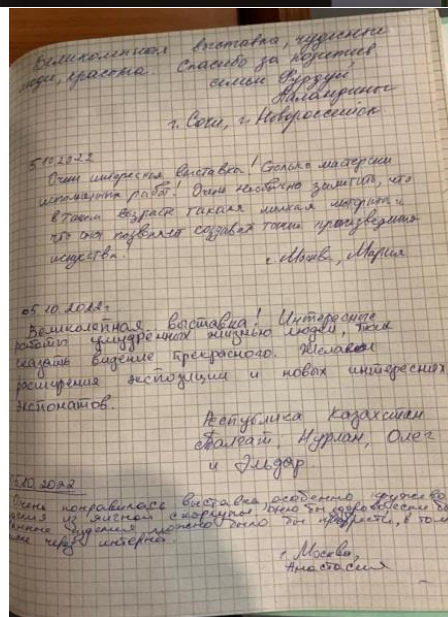 Великолепная выставка, чудесные
люди, красота. Спасибо за позитив
семьи
г. Сочи, г. Новороссийск
5.10.2022
Очень интересная выставка! Столько мастерски
исполненных работ! Очень необычно заметить, что
в таком возрасте такая мелкая моторика и
что она позволяет создавать такие произведения
искусства.
г. Москва, Мария
05.10.2022г.
Великолепная выставка! Интересные
работы умудрённых жизнью людей, так
сказать видение прекрасного. Желаем
расширения экспозиции и новых интересных
экспонатов.
Республика Казахстан
Талгат, Нурлан, Олег
и Эльдар.
10.2022
Очень понравилась выставка, особенно кружево
из яичной скорлупы. Было бы здорово если бы
изделия можно было бы приобрести, в том
через интернет.
г. Москва,
Анастасия